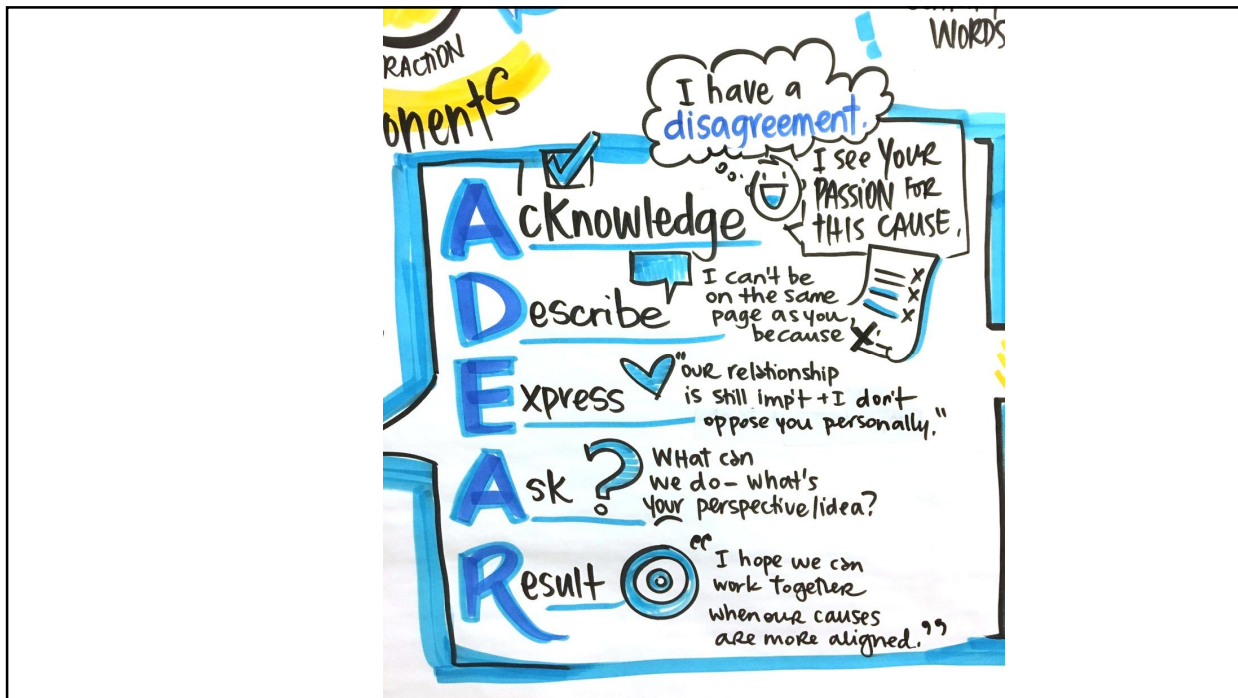 RACTION
onents
WORDS
I have a
disagreement.
I see YOUR
PASSION FOR
THIS CAUSE.
Acknowledge
Describe
I can't be
on the same
page as you,
because
Express
"OUR relationship
is still imp't + I don't
oppose you personally."
Ask ?
WHat can
we do – what's
your perspective/idea?
Result
"I hope we can
work together
when our causes
are more aligned."